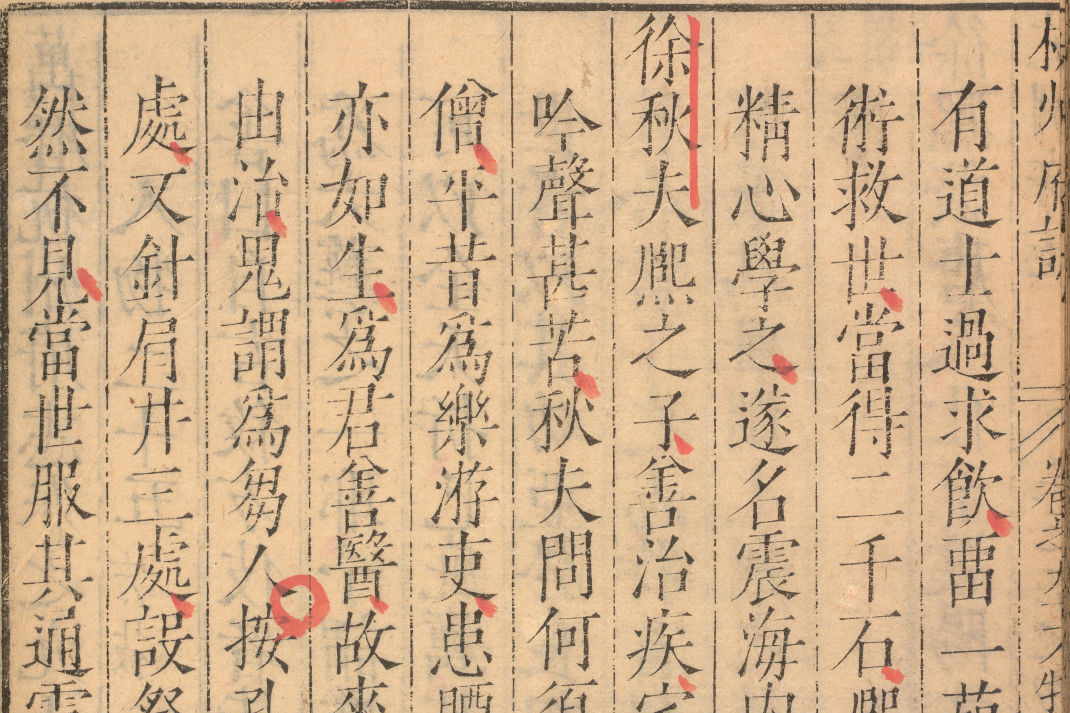 有道士過求飲畱一
術救世當得二千石
精心學之遂名震海
徐秋夫熈之子善治疾
吟聲甚苦秋夫問何
僧平昔為樂游吏患
亦如生為君善醫故來
由治鬼謂為芻人按孔
處又針肩井三處設祭
然不見當世服其通靈